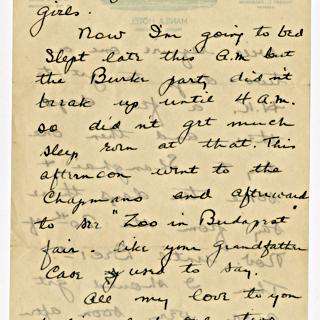 girls.
Now I'm going to bed
Slept late this A.M. but
the Burke party did n't
break up until 4 A.M.
so did n't get much
sleep even at that. This
afternoon went to the
Chapmans and afterward
to see "Zoo in Budapest"
fair. like your Grandfather
Case used to say.
All my love to you
MANILA HOTEL